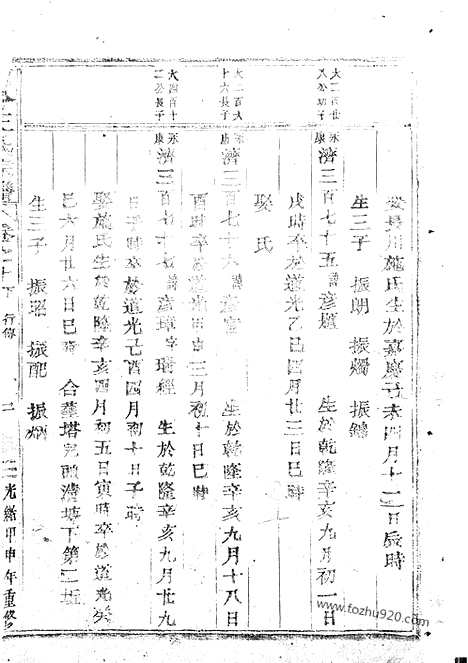 娶長川施氏生於嘉慶 四月十二日辰時
生三子 振朗 振燭 振鏽
大二百廿
八公幼子
永康
濟三百七十五 諱彦爐 生於乾隆辛亥九月初一日
戌時卒於道光乙巳四月廿三日巳時
娶 氏
大二百
十六長子
永康
濟三百七十六 諱彦 生於乾隆辛亥九月十八日
酉時卒於道光 三月初十日巳時
大四百十
二公長子
永康
濟三百七十七 諱彦璋字瑞經 生於乾隆辛亥九月廿九
日子時卒於道光己酉四月初十日子時
娶施氏生於乾隆辛亥四月初五日寅時卒於道光癸
巳六月廿六日巳時 合葬塔 下第二坵
生三子 振瑠 振配 振炳
王氏宗譜 下 行傳
光緒甲申年重修
www.fozhu920.com